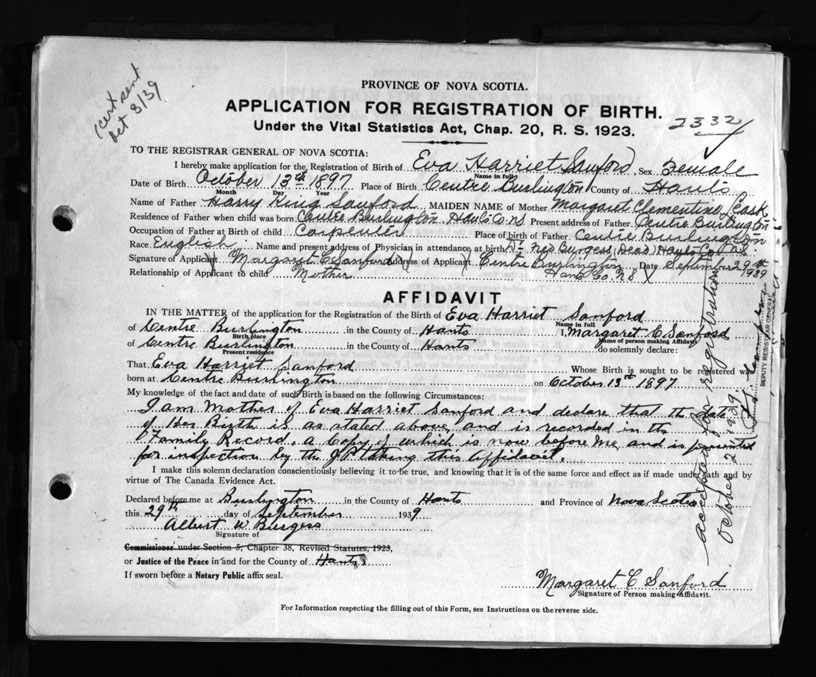 (cert sent
Oct 3/39
PROVINCE OF NOVA SCOTIA.
APPLICATION FOR REGISTRATION OF BIRTH.
2332
Under the Vital Statistics Act, Chap. 20, R. S. 1923.
TO THE REGISTRAR GENERAL OF NOVA SCOTIA:
I hereby make application for the Registration of Birth of Eva Harriet Sanford Sex Female
Name in full
Date of Birth October 13th 1897 Place of Birth Centre Burlington County of Hants
Month Day Year
Name of Father Harry King Sanford MAIDEN NAME of Mother Margaret Clementine Lask
Residence of Father when child was born Centre Burlington Hants Co NS Present address of Father Centre Burlington
Occupation of Father at Birth of child Carpenter Place of birth of Father Centre Burlington
Race English Name and present address of Physician in attendance at birth Dr Burgess (Dead) Hants Co NS
Signature of Applicant Margaret C Sanford address of Applicant Centre Burlington Date September 29th
Relationship of Applicant to child Mother Hants Co. NS 1939
AFFIDAVIT
IN THE MATTER of the application for the Registration of the Birth of Eva Harriet Sanford
Name in full
of Centre Burlington in the County of Hants I, Margaret C Sanford
Birth place Name of person making Affidavit
of Centre Burlington in the County of Hants do solemnly declare:
Present residence
That Eva Harriet Sanford Whose Birth is sought to be registered was
born at Centre Burlington on October 13th 1897
My knowledge of the fact and date of such Birth is based on the following Circumstances:
I am Mother of Eva Harriet Sanford and declare that the date
of Her Birth is as stated above, and is recorded in the
Family Record, a Copy of which is now before me and is presented
for inspection by the J P taking this Affidavit.
I make this solemn declaration conscientiously believing it to be true, and knowing that it is of the same force and effect as if made under oath and by
virtue of The Canada Evidence Act.
Declared before me at Burlington in the County of Hants and Province of Nova Scotia
this 29th day of September 1939
Albert W Burgess
Signature of
Commissioner under Section 5, Chapter 38, Revised Statutes, 1923,
or Justice of the Peace in and for the County of Hants
If sworn before a Notary Public affix seal.
Margaret C Sanford
Signature of Person making Affidavit.
For Information respecting the filling out of this Form, see Instructions on the reverse side.
accepted for registration
October 2nd 1939.
DEPUTY REGISTRAR GENERAL